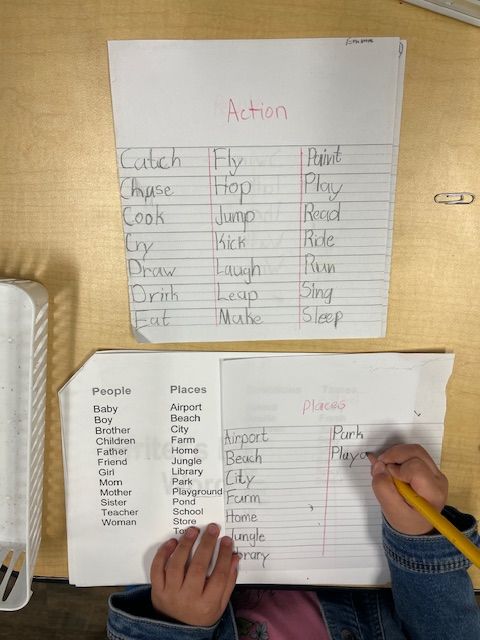 Action
Catch Fly Paint
Chase Hop Play
Cook Jump Read
Cry Kick Ride
Draw Laugh Run
Drink Leap Sing
Eat Make Sleep
People Places
Baby Airport
Boy Beach
Brother City
Children Farm
Father Home
Friend Jungle
Girl Library
Mom Park
Mother Playground
Sister Pond
Teacher School
Woman Store
Places
Airport Park
Beach
City
Farm
Home
Jungle